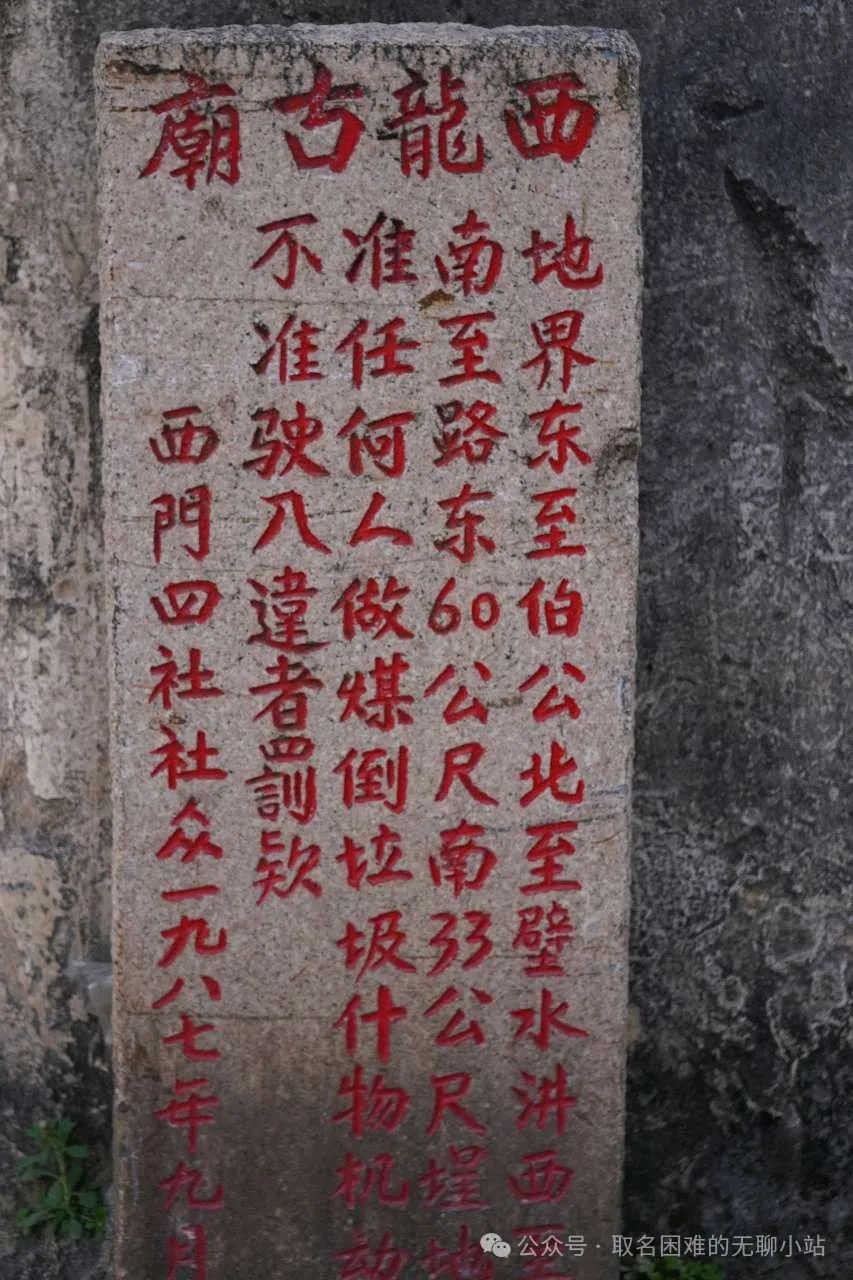 西龍古廟
地界东至伯公北至壁水洪西至
南至路东60公尺南33公尺埕地
准任何人做煤倒垃圾什物机动
不准驶入違者罰款
西門四社社众一九八七年九月
公众号·取名困难的无聊小站